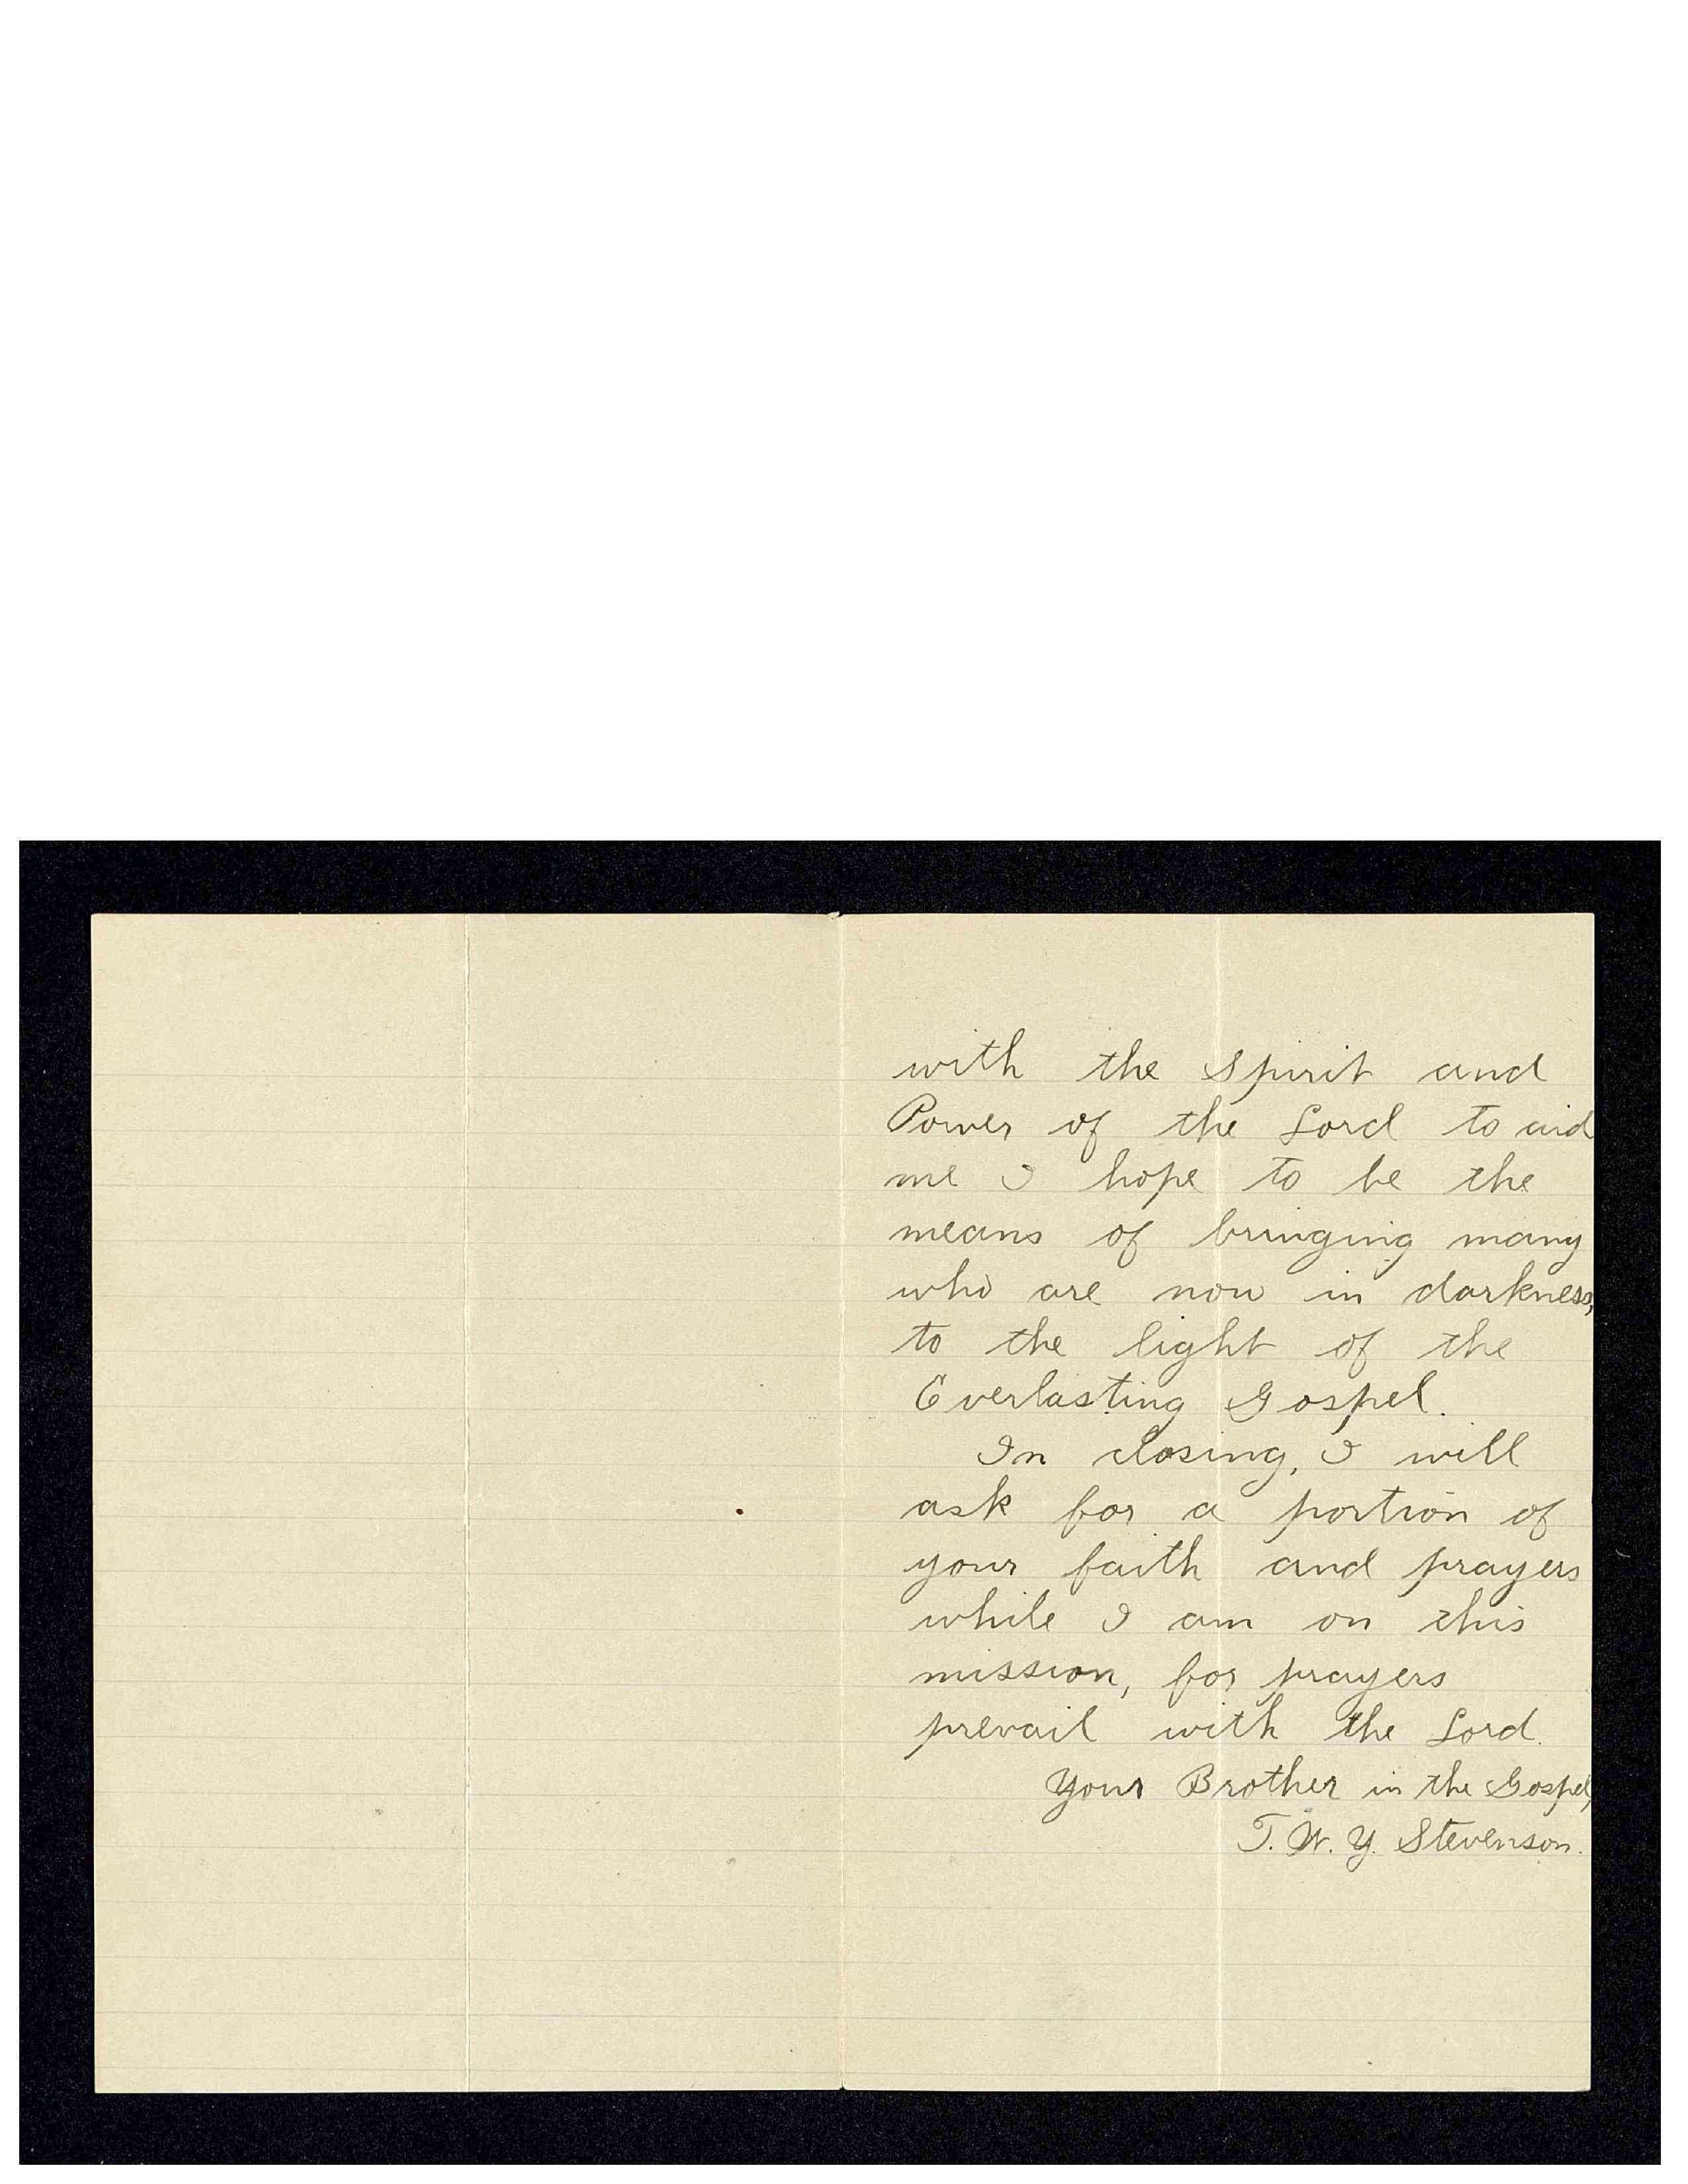 with the Spirit and
Power of the Lord to aid
me I hope to be the
means of bringing many
who are now in darkness,
to the light of the
Everlasting Gospel.
In closing, I will
ask for a portion of
your faith and prayers
while I am on this
mission, for prayers
prevail with the Lord.
Your Brother in the Gospel,
T. W. Y. Stevenson.